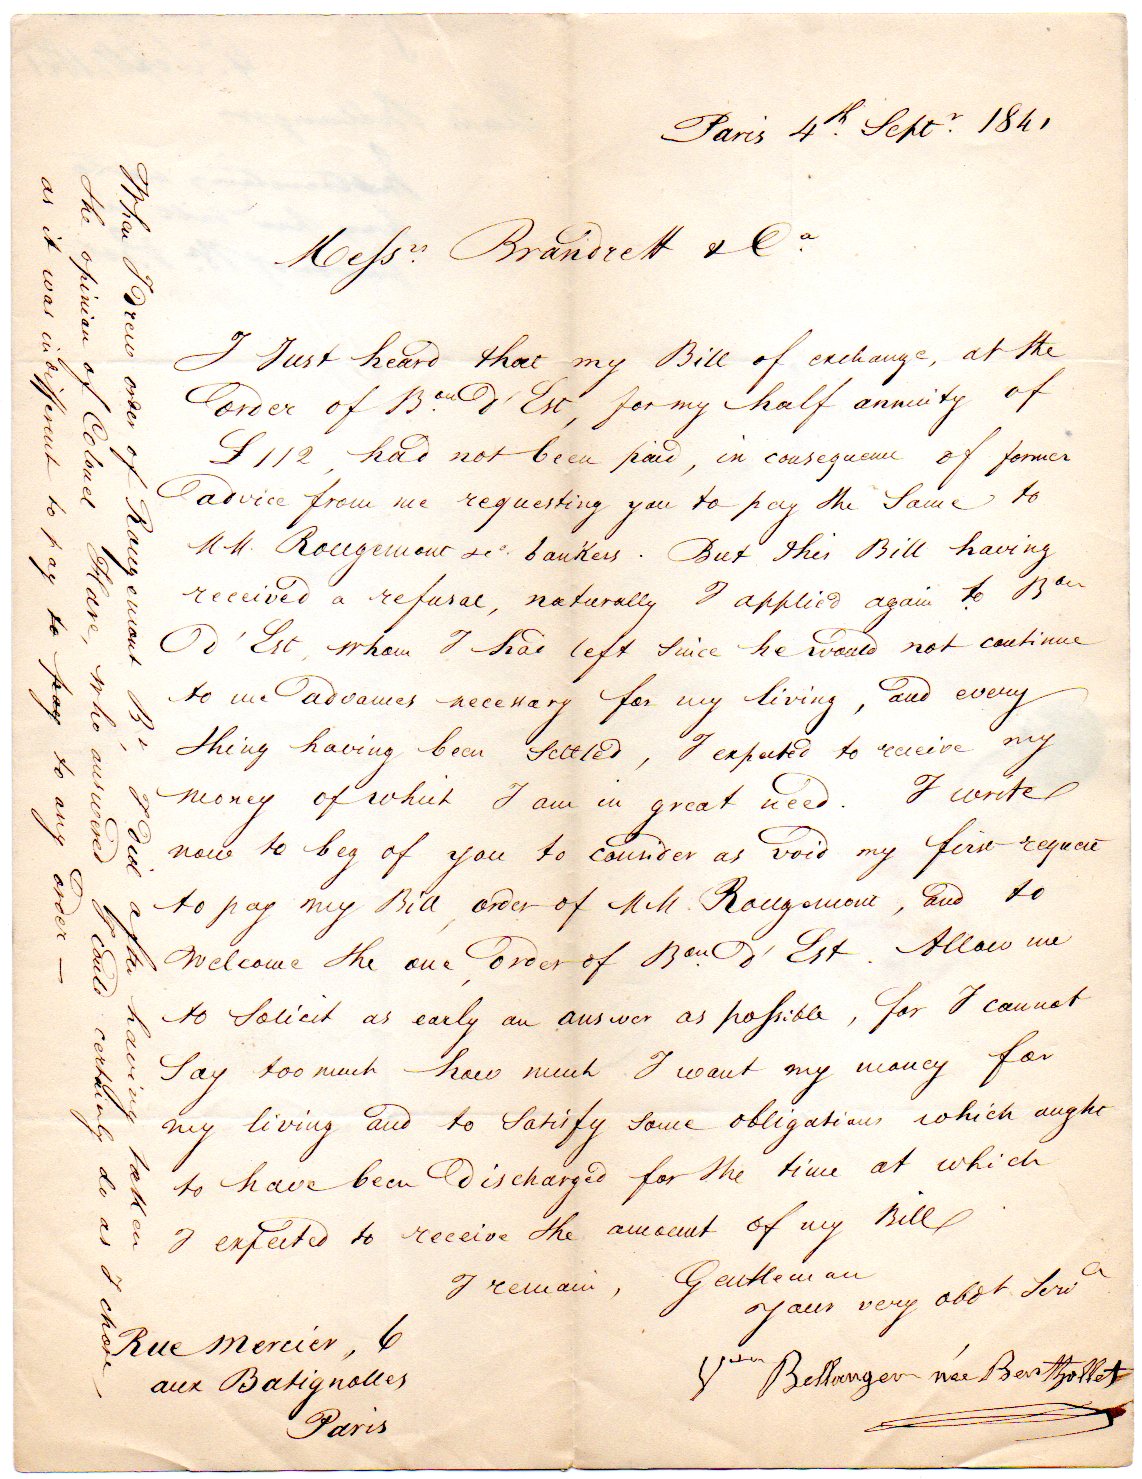 Paris 4th. Septr. 1841
Messrs. Brandrett & Ca.
I Just heard that my Bill of exchange, at the
order of Bon. d'Est, for my half annuity of
£112, had not been paid, in consequence of former
advice from me requesting you to pay the Same to
MM. Rougemont & co. bankers. But this Bill having
received a refusal, naturally I applied again to Bon
d'Est, whom I had left since he would not continue
to me advances necessary for my living, and every
thing having been settled, I expected to receive my
money of which I am in great need. I write
now to beg of you to consider as void my first request
to pay my Bill, order of MM. Rougemont, and to
Welcome the one, order of Bon d'Est. Allow me
to Solicit as early an answer as possible, for I cannot
Say too much how much I want my money for
my living and to Satisfy some obligations which ought
to have been discharged for the time at which
I expected to receive the amount of my Bill
I remain, Gentleman
Your very obdt Servt
Bellanger née Berthollet
Rue Mercier, 6
aux Batignolles
Paris
When I drew order of Rougemont Br I did after having taken
the opinion of Colonel Hare, who answered I could certainly do as I chose,
as it was indifferent to pay to pay to any order—